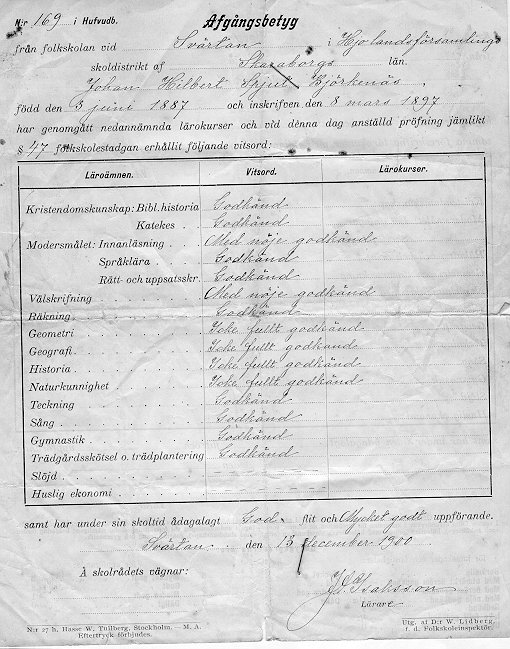 N:r 169 i Hufvudb.
Afgångsbetyg
från folkskolan vid Svärtan i Hjo landsförsamlings
skoldistrikt af Skaraborgs län.
Johan Hilbert Björkenäs.
född den 3 juni 1887 och inskrifven den 8 mars 1897
har genomgått nedannämnda lärokurser och vid denna dag anställd pröfning jämlikt
§ 47 folkskolestadgan erhållit följande vitsord:
Läroämnen. Vitsord. Lärokurser.
Kristendomskunskap: Bibl. historia Godkänd
Katekes . . Godkänd
Modersmålet: Innanläsning . . Med nöje godkänd
Språklära . . Godkänd
Rätt- och uppsatsskr. Godkänd
Välskrifning Med nöje godkänd
Räkning . . Godkänd
Geometri . . Icke fullt godkänd
Geografi . . Icke fullt godkänd
Historia . . Icke fullt godkänd
Naturkunnighet . . Icke fullt godkänd
Teckning . . Godkänd
Sång . . Godkänd
Gymnastik . . Godkänd
Trädgårdsskötsel o. trädplantering Godkänd
Slöjd . .
Huslig ekonomi . .
samt har under sin skoltid ådagalagt God flit och Mycket godt uppförande.
Svärtan den 13 december 1900
Å skolrådets vägnar:
Isaksson
Lärare
N:r 27 h. Hasse W. Tullberg, Stockholm. M. A.
Eftertryck förbjudes.
Utg. af D:r W. Lidberg,
f. d. Folkskoleinspektör.